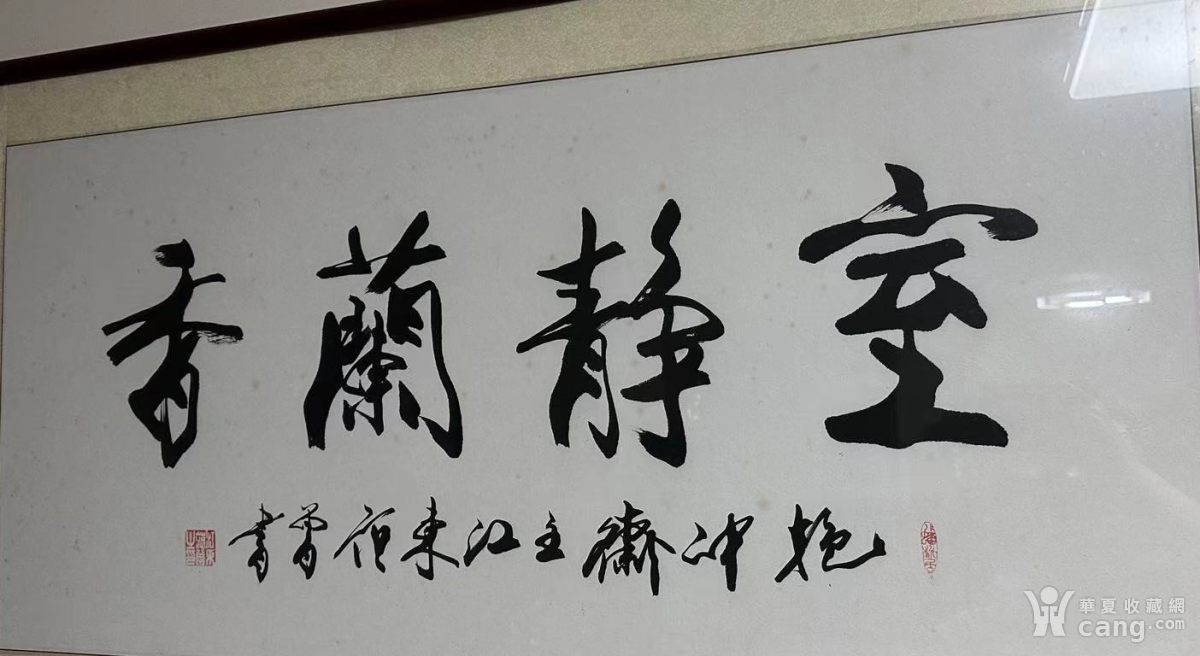 室静蘭香
抱冲齋主江東范曾書
華夏收藏網
cang.com